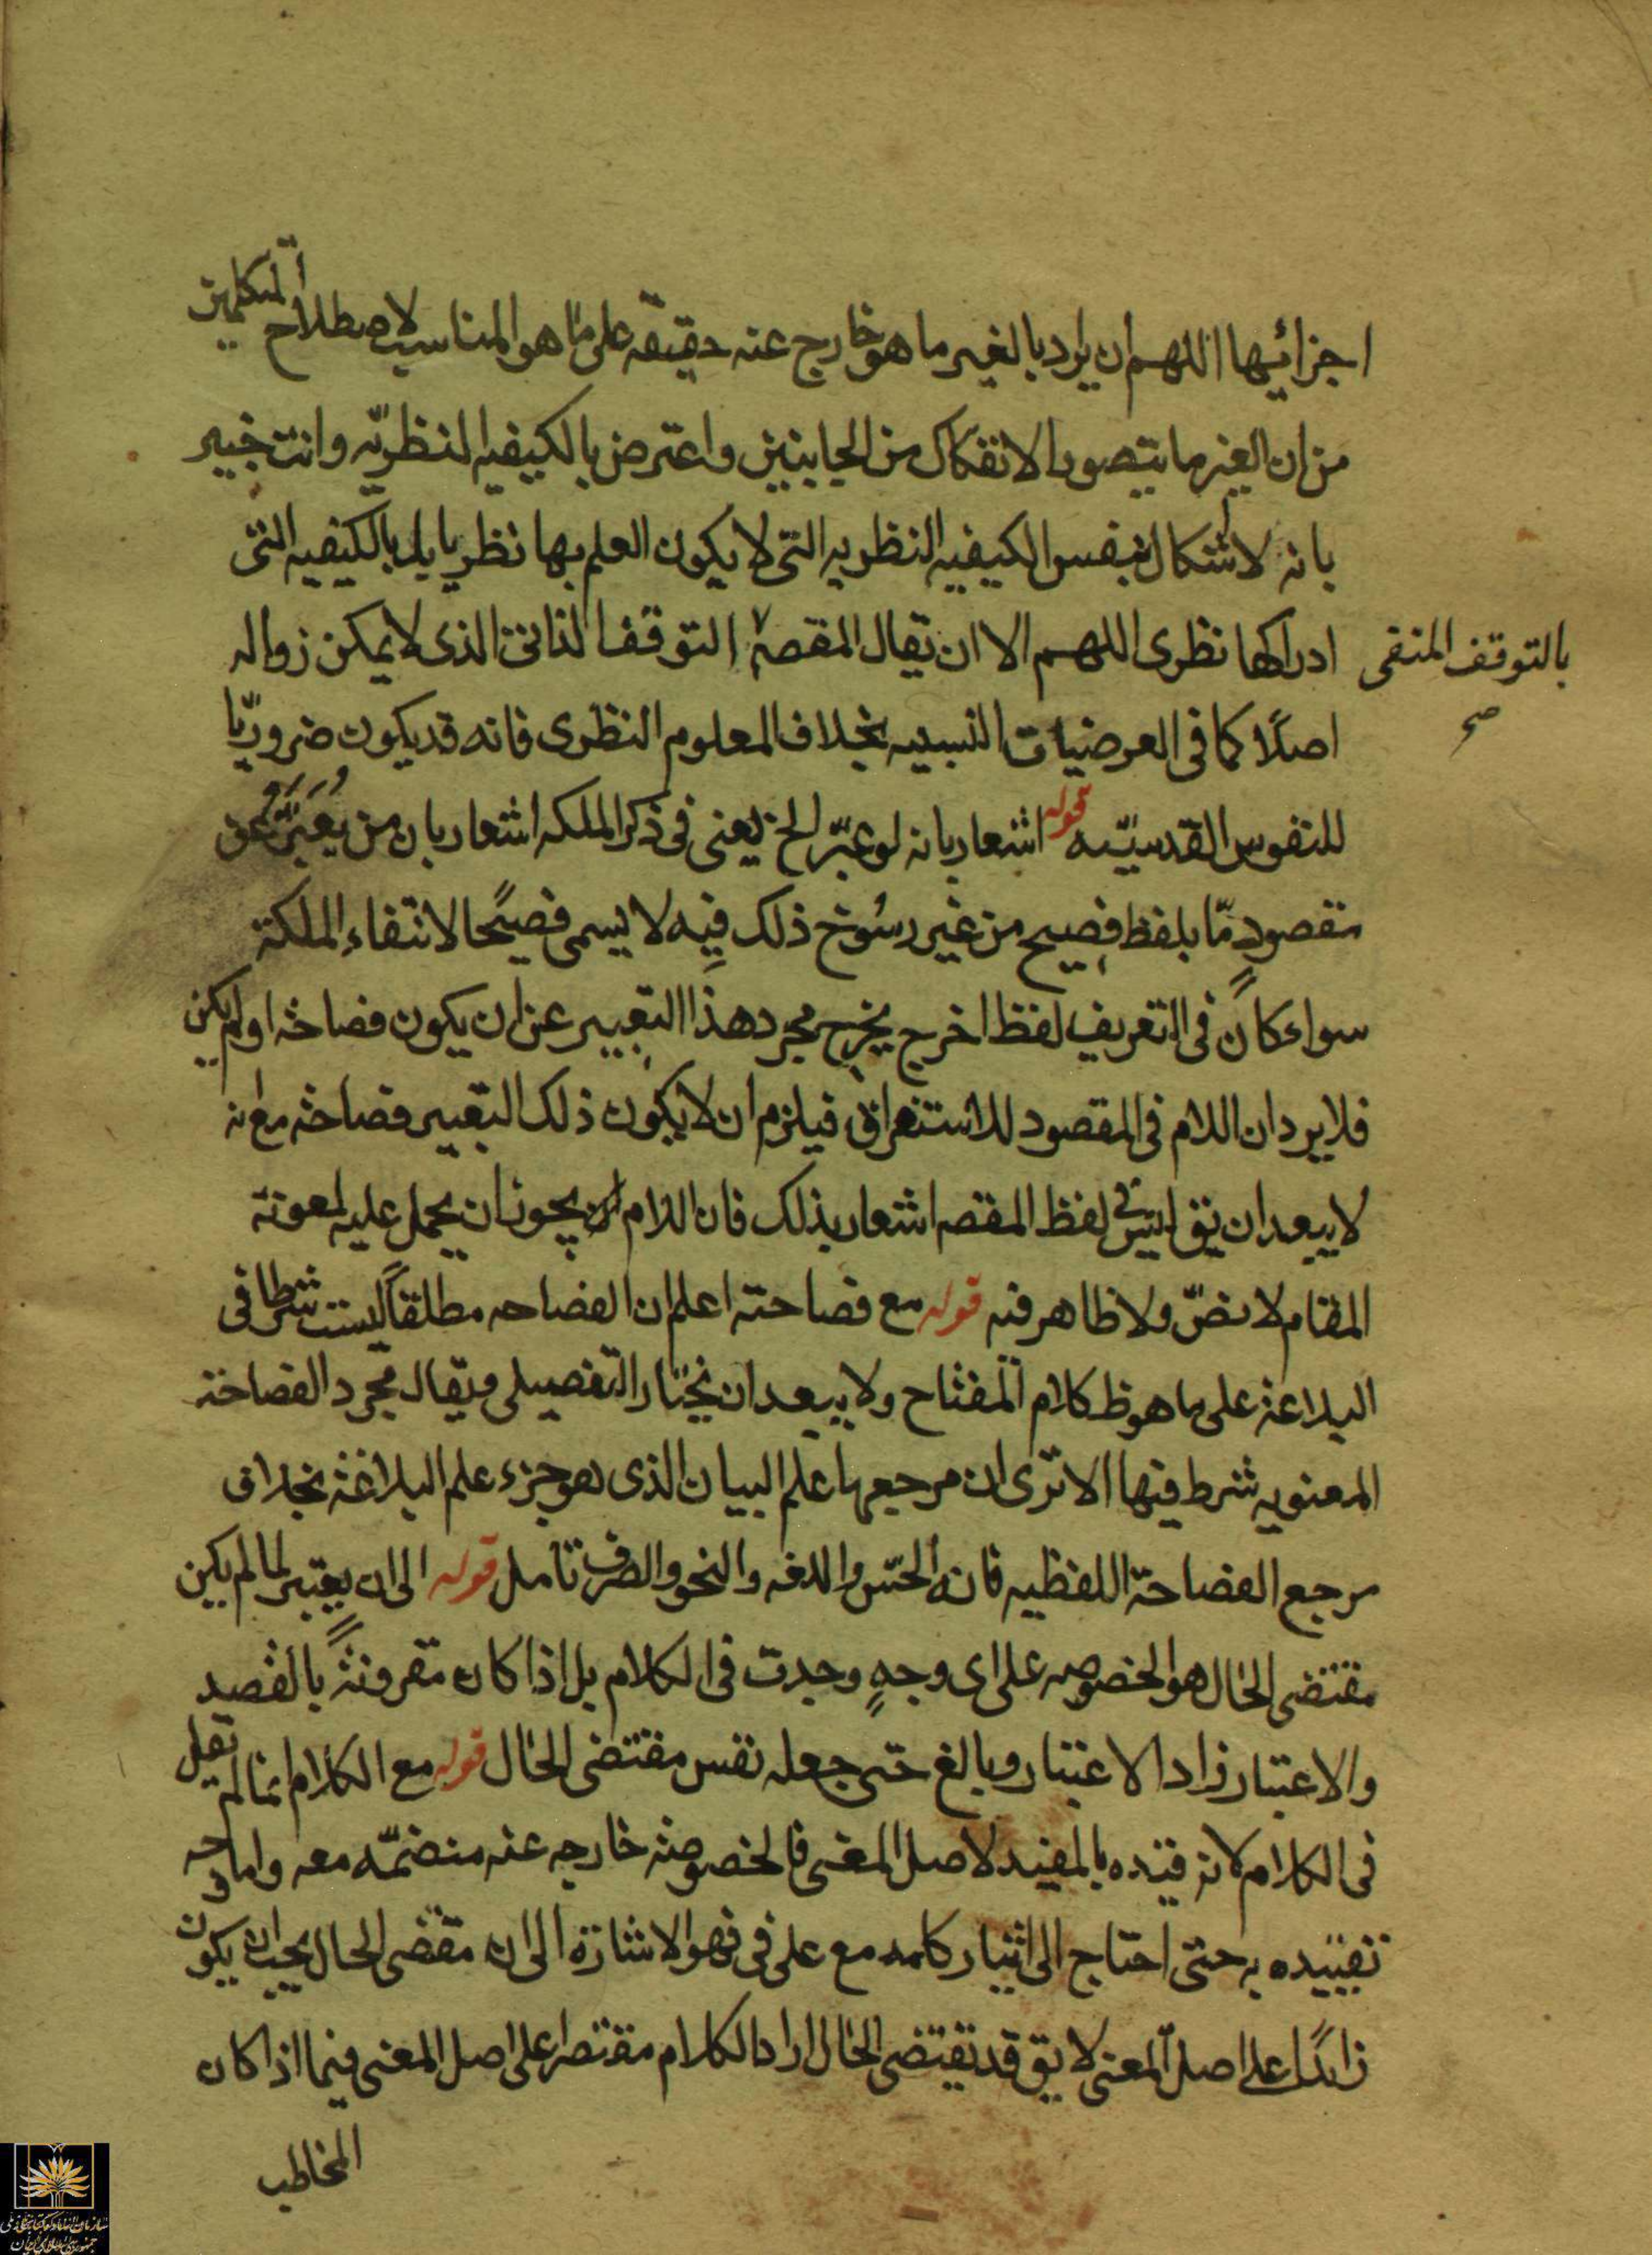 اجزائيها اللهم ان يراد بالغير ما هو خارج عنه حقيقه على ما هو المناسب لاصطلاح المتكلمين
من ان الغير ما يتصور الانفكاك من الجانبين واعترض بالكيفيه النظريّه وانت خبير
بانه لا اشكال بنفس الكيفيه النظريه التى لا يكون العلم بها نظريا بل بالكيفيه التى
ادراكها نظرى اللهم الا ان يقال المقصد التوقف الذاتى الذى لا يمكن زواله
بالتوقف المنفى
صح
اصلًا كما فى العرضيات النسبيه بخلاف المعلوم النظرى فانه قد يكون ضروريّا
للنفوس القدسيّه قوله اشعار بانه لو عبّر الخ يعنى فى ذكر الملكه اشعار بان من يُعَبِّرُ عن
مقصودٍ مّا بلفظ فصيح من غير رسُوخ ذلك فيه لا يسمى فصيحًا لانتفاء الملكة
سواء كان فى التعريف لفظ اخرج يخرج مجرد هذا التعبير عن ان يكون فصاحة او لم يكن
فلا يرد ان اللام فى المقصود للاستغراق فيلزم ان لا يكون ذلك التعبير فصاحة مع انه
لا يبعد ان يق ليس فى لفظ المقصد اشعار بذلك فان اللام يجوز ان يحمل عليه لمعونة
المقام لا نصّ ولا ظاهر فيه قوله مع فصاحته اعلم ان الفصاحه مطلقاً ليست شرطا فى
البلاغة على ما هو ظ كلام المفتاح ولا يبعد ان يختار التفصيلى ويقال مجرد الفصاحة
المعنويه شرط فيها الا ترى ان مرجعها علم البيان الذى هو جزء علم البلاغة بخلاف
مرجع الفصاحة اللفظيه فانه الحسّ واللغه والنحو والصرف تامل قوله الى ان يعتبر لما لم يكن
مقتضى الحال هو الخصوصه على اى وجهٍ وجدت فى الكلام بل اذا كان مقرونةً بالقصد
والاعتبار زاد الاعتبار وبالغ حتى جعله نفس مقتضى الحال قوله مع الكلام انما لم يقل
فى الكلام لانه قيّده بالمفيد لاصل المعنى فالخصوصية خارجه عنه منضمّه معه واما وجه
تقييده به حتى احتاج الى اثيار كلمه مع على فى فهو الاشارة الى ان مقتضى الحال يجب ان يكون
زائدًا على اصل المعنى لا يق قد يقتضى الحال ايراد الكلام مقتصرا على اصل المعنى فيما اذا كان
المخاطب